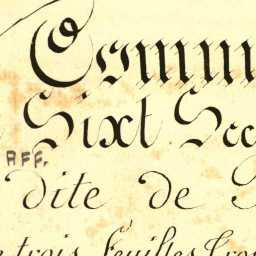 Comm
Sixt Sec
AFF.
dite de
trois feuilles